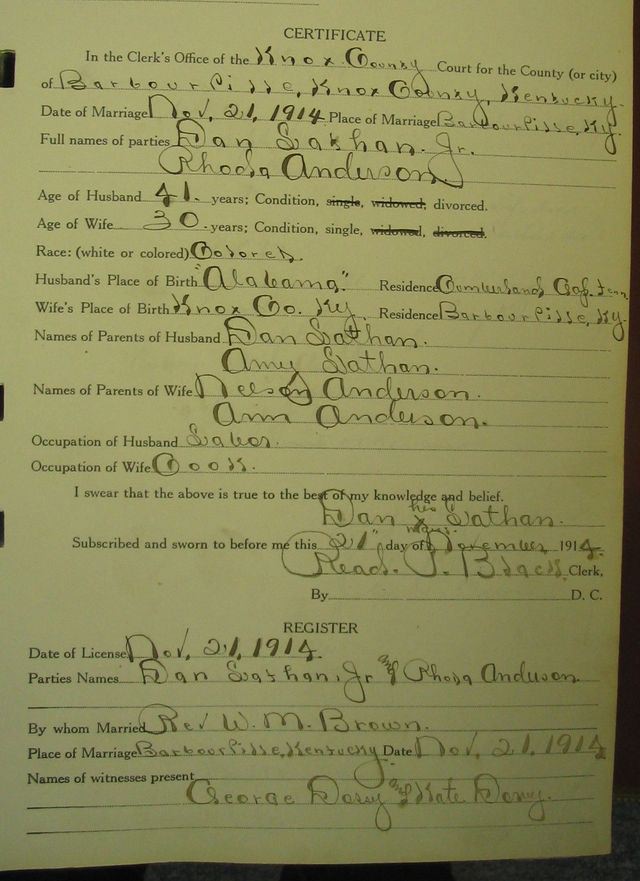 CERTIFICATE
In the Clerk's Office of the Knox County Court for the County (or city)
of Barbourville, Knox County, Kentucky.
Date of Marriage Nov, 21, 1914 Place of Marriage Barbourville, Ky.
Full names of parties Dan Lathan. Jr.
Rhoda Anderson
Age of Husband 41. years; Condition, single, widowed, divorced.
Age of Wife 30. years; Condition, single, widowed, divorced.
Race: (white or colored) Colored.
Husband's Place of Birth "Alabama." Residence Cumberland Gap. Tenn
Wife's Place of Birth Knox Co. Ky. Residence Barbourville, Ky.
Names of Parents of Husband Dan Lathan.
Amy Lathan.
Names of Parents of Wife Nelson Anderson.
Ann Anderson.
Occupation of Husband Labor.
Occupation of Wife Cook.
I swear that the above is true to the best of my knowledge and belief.
Dan his x mark Lathan.
Subscribed and sworn to before me this 21" day of November 1914.
Read. P. Black Clerk,
By D. C.
REGISTER
Date of License Nov, 21, 1914
Parties Names Dan Lathan, Jr and Rhoda Anderson
By whom Married Rev W. M. Brown.
Place of Marriage Barbourville, Kentucky Date Nov, 21, 1914
Names of witnesses present
George and Kate